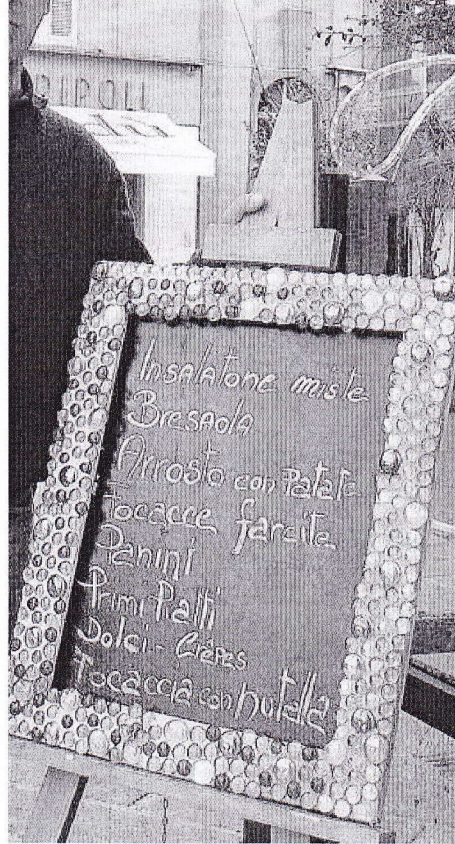 RIPOLI
Insalatone miste
Bresaola
Arrosto con Patate
Focacce farcite
Panini
Primi Piatti
Dolci - Crêpes
Focaccia con nutella